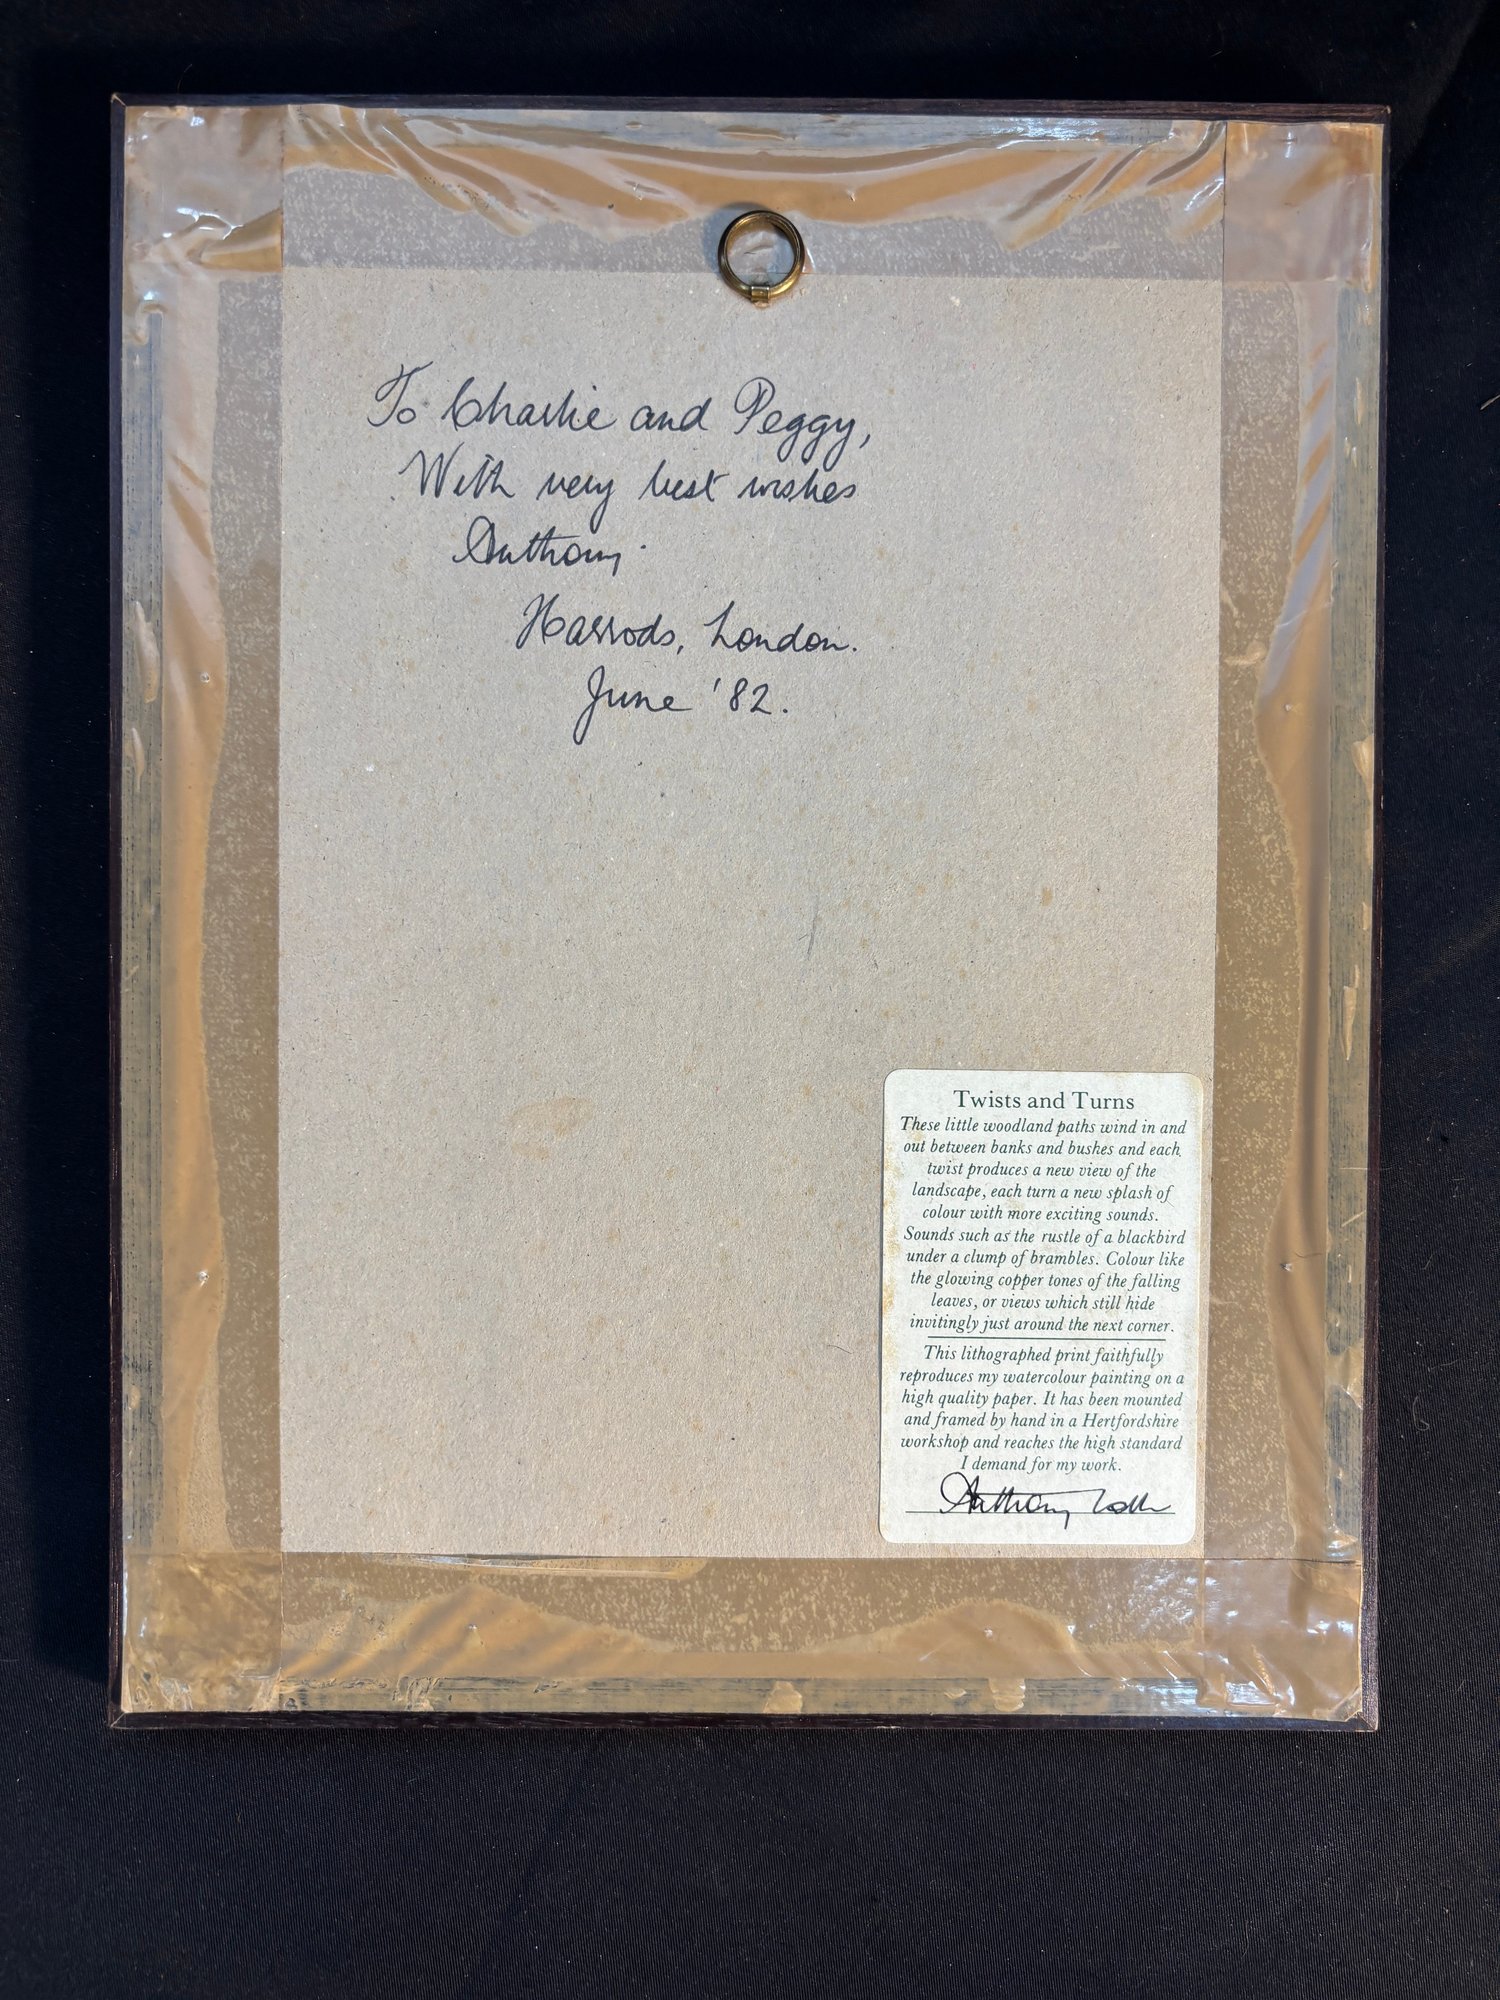 To Charlie and Peggy,
With very best wishes
Anthony.
Harrods, London.
June '82.
Twists and Turns
These little woodland paths wind in and
out between banks and bushes and each
twist produces a new view of the
landscape, each turn a new splash of
colour with more exciting sounds.
Sounds such as the rustle of a blackbird
under a clump of brambles. Colour like
the glowing copper tones of the falling
leaves, or views which still hide
invitingly just around the next corner.
This lithographed print faithfully
reproduces my watercolour painting on a
high quality paper. It has been mounted
and framed by hand in a Hertfordshire
workshop and reaches the high standard
I demand for my work.
Anthony